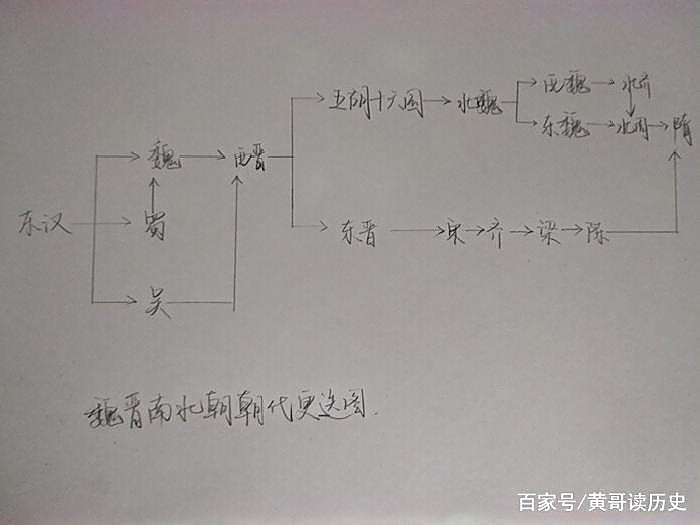 西魏 北齐
五胡十六国 北魏
东魏 北周 隋
魏 西晋
东汉 蜀 东晋 宋 齐 梁 陈
吴
魏晋南北朝朝代更迭图.
百家号/黄哥读历史